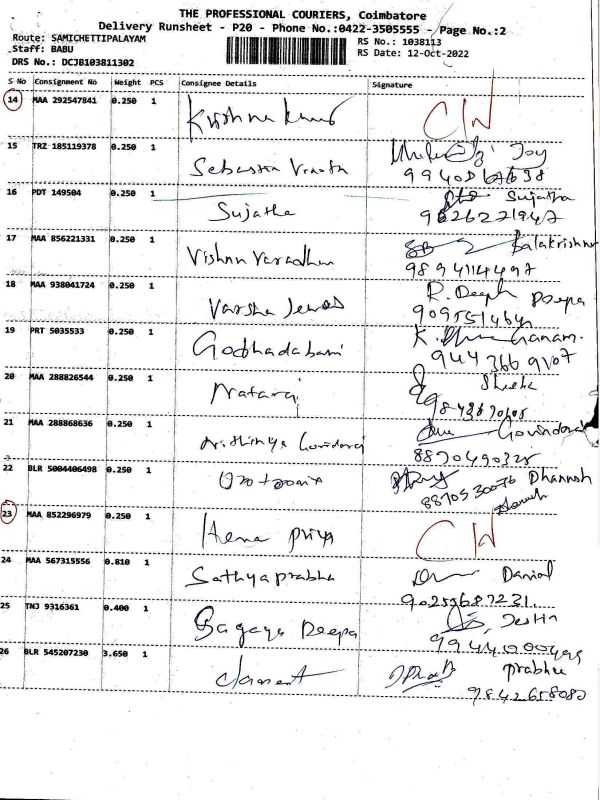 THE PROFESSIONAL COURIERS, Coimbatore
Delivery Runsheet - P20 - Phone No.:0422-3505555 - Page No.:2
Route: SAMICHETTIPALAYAM RS No.: 1038113
Staff: BABU RS Date: 12-Oct-2022
DRS No.: DCJB103811302
S No Consignment No Weight PCS Consignee Details Signature
14 MAA 292547841 0.250 1 Krishna kumar C/N
15 TRZ 185119378 0.250 1 Joy
16 PDT 149504 0.250 1 Sujatha Sujatha
9626271947
17 MAA 856221331 0.250 1 Vishnu Varadhan Balakrishnan
9894114497
18 MAA 938041724 0.250 1 Varsha Jewels R. Deepa Deepa
19 PRT 5035533 0.250 1 K.
944 366 9107
20 MAA 288826544 0.250 1 Nataraj
21 MAA 288868636 0.250 1 Govindaraj
8870490328
22 BLR 5004406498 0.250 1 Dhanush
8870530076
23 MAA 852296979 0.250 1 Hema priya C/N
24 MAA 567315556 0.810 1 Sathyaprabha Danial
90255687231.
25 TNJ 9316361 0.400 1 Deepa
26 BLR 545207230 3.650 1 clament Prabhu
9842658080